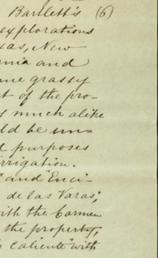 Bartlett's (6)
explorations
as, New
nia and
me grassy
t of the pro-
s much alike
ld be un-
d purposes
rrigation.
" and "Enci-
de las Varas,"
with the Carmen
the property,
caliente" with